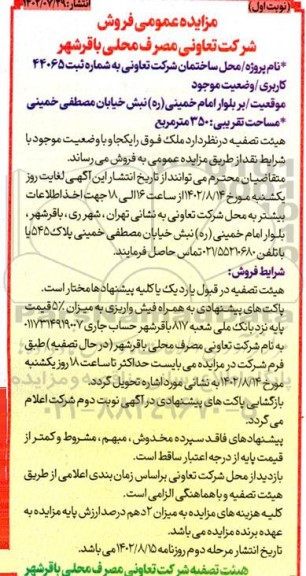 (نوبت اول)
انتشار: ۱۴۰۲/۰۷/۲۹
مزایده عمومی فروش
شرکت تعاونی مصرف محلی باقرشهر
*نام پروژه/محل ساختمان شرکت تعاونی به شماره ثبت ۴۴۰۶۵
کاربری/وضعیت موجود
موقعیت/بر بلوار امام خمینی(ره) نبش خیابان مصطفی خمینی
*مساحت تقریبی: ۳۵۰ مترمربع
هیئت تصفیه در نظر دارد ملک فوق را یکجا و با وضعیت موجود با
شرایط نقد از طریق مزایده عمومی به فروش می رساند.
متقاضیان محترم می توانند از تاریخ انتشار این آگهی لغایت روز
یکشنبه مورخ ۱۴۰۲/۸/۱۴ از ساعت ۱۶ الی ۱۸ جهت اخذ اطلاعات
بیشتر به محل شرکت تعاونی به نشانی تهران، شهر ری، باقرشهر،
بلوار امام خمینی(ره) نبش خیابان مصطفی خمینی پلاک ۵۴۵ یا
با تلفن ۰۲۱/۵۵۲۱۰۶۸۰ تماس حاصل فرمایند.
شرایط فروش:
هیئت تصفیه در قبول یا رد یک یا کلیه پیشنهادها مختار است.
پاکت های پیشنهادی به همراه فیش واریزی به میزان ۵٪ قیمت
پایه نزد بانک ملی شعبه ۸۱۷ باقرشهر حساب جاری ۰۱۱۷۳۱۴۹۱۹۰۰۷
به نام شرکت تعاونی مصرف محلی باقرشهر (در حال تصفیه) طبق
فرم شرکت در مزایده می بایست حداکثر تا ساعت ۱۸ روز یکشنبه
مورخ ۱۴۰۲/۸/۱۴ به نشانی مورد اشاره تحویل گردد.
بازگشایی پاکت های پیشنهادی در آگهی نوبت دوم شرکت اعلام
می گردد.
پیشنهادهای فاقد سپرده مخدوش، مبهم، مشروط و کمتر از
قیمت پایه از درجه اعتبار ساقط است.
بازدید از محل شرکت تعاونی براساس زمان بندی اعلامی از طریق
هیئت تصفیه و با هماهنگی الزامی است.
کلیه هزینه های مزایده به میزان ۲ دهم درصد ارزش پایه مزایده به
عهده برنده مزایده می باشد.
تاریخ انتشار مرحله دوم روزنامه ۱۴۰۲/۸/۱۵ می باشد.
هیئت تصفیه شرکت تعاونی مصرف محلی باقرشهر